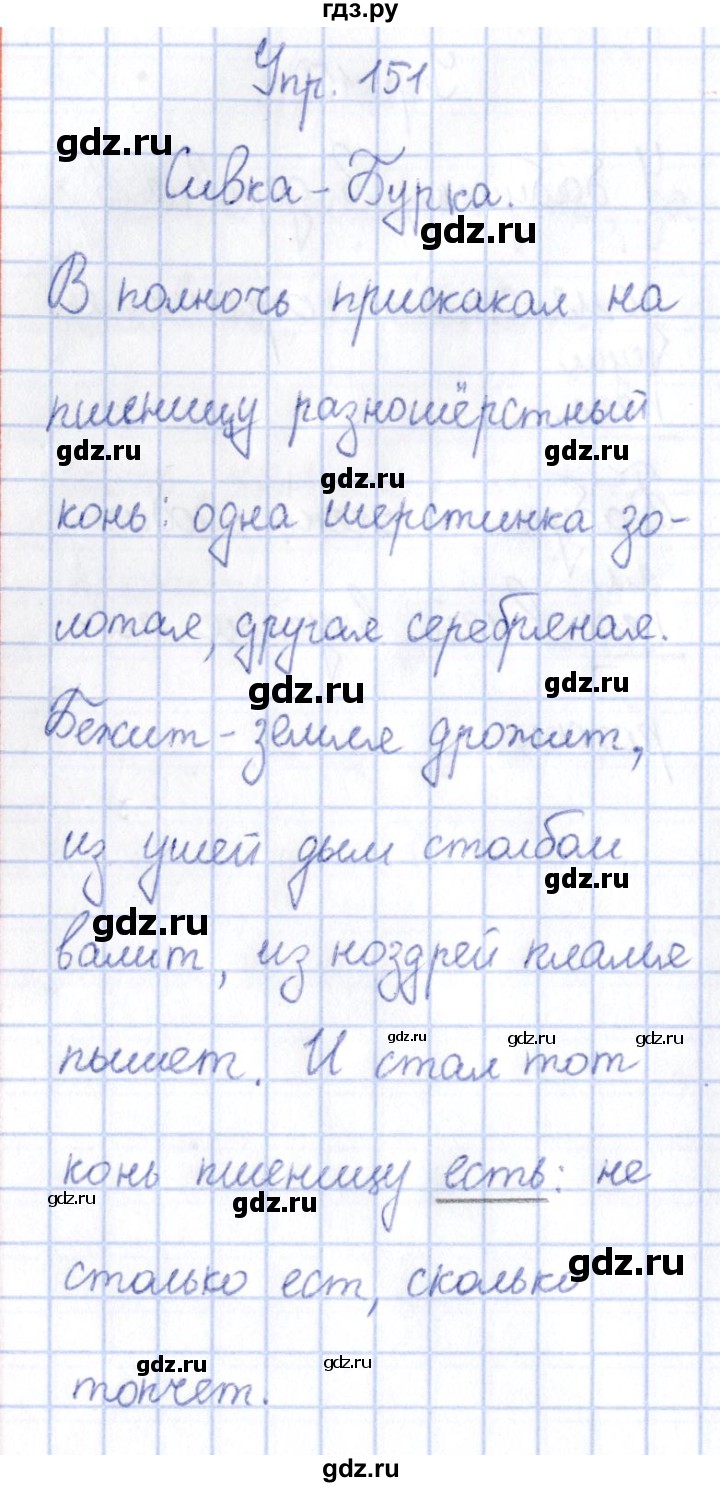 гдз.ру
Упр. 151
gdz.ru
Сивка-Бурка.
gdz.ru
В полночь прискакал на
пшеницу разношёрстный
gdz.ru gdz.ru gdz.ru
конь: одна шерстинка зо-
лотая, другая серебряная.
gdz.ru gdz.ru
Бежит - земля дрожит,
из ушей дым столбом
gdz.ru
gdz.ru
валит, из ноздрей пламя
gdz.ru gdz.ru gdz.ru
пышет. И стал тот
конь пшеницу есть: не
gdz.ru gdz.ru
столько ест, сколько
gdz.ru
gdz.ru gdz.ru
топчет.
gdz.ru